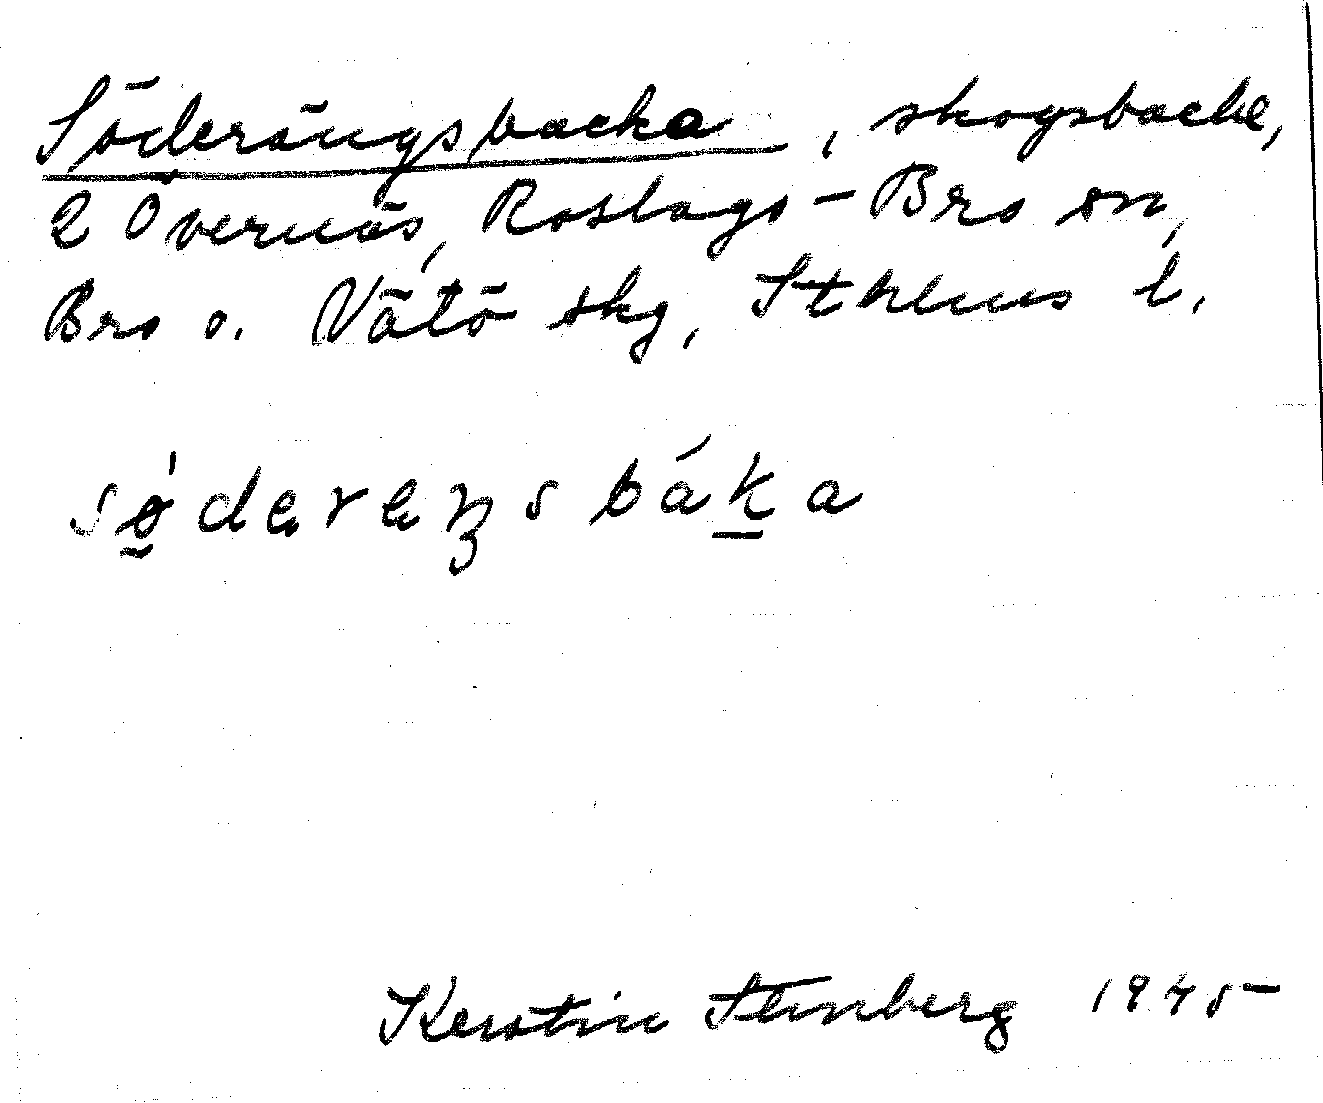 Söderängsbacka, skogsbacke,
2 Övernäs, Roslags-Bro sn,
Bro o. Vätö skg, Sthlms l.
sǿ̠derεŋsbák̠a
Kerstin Stenberg 1945